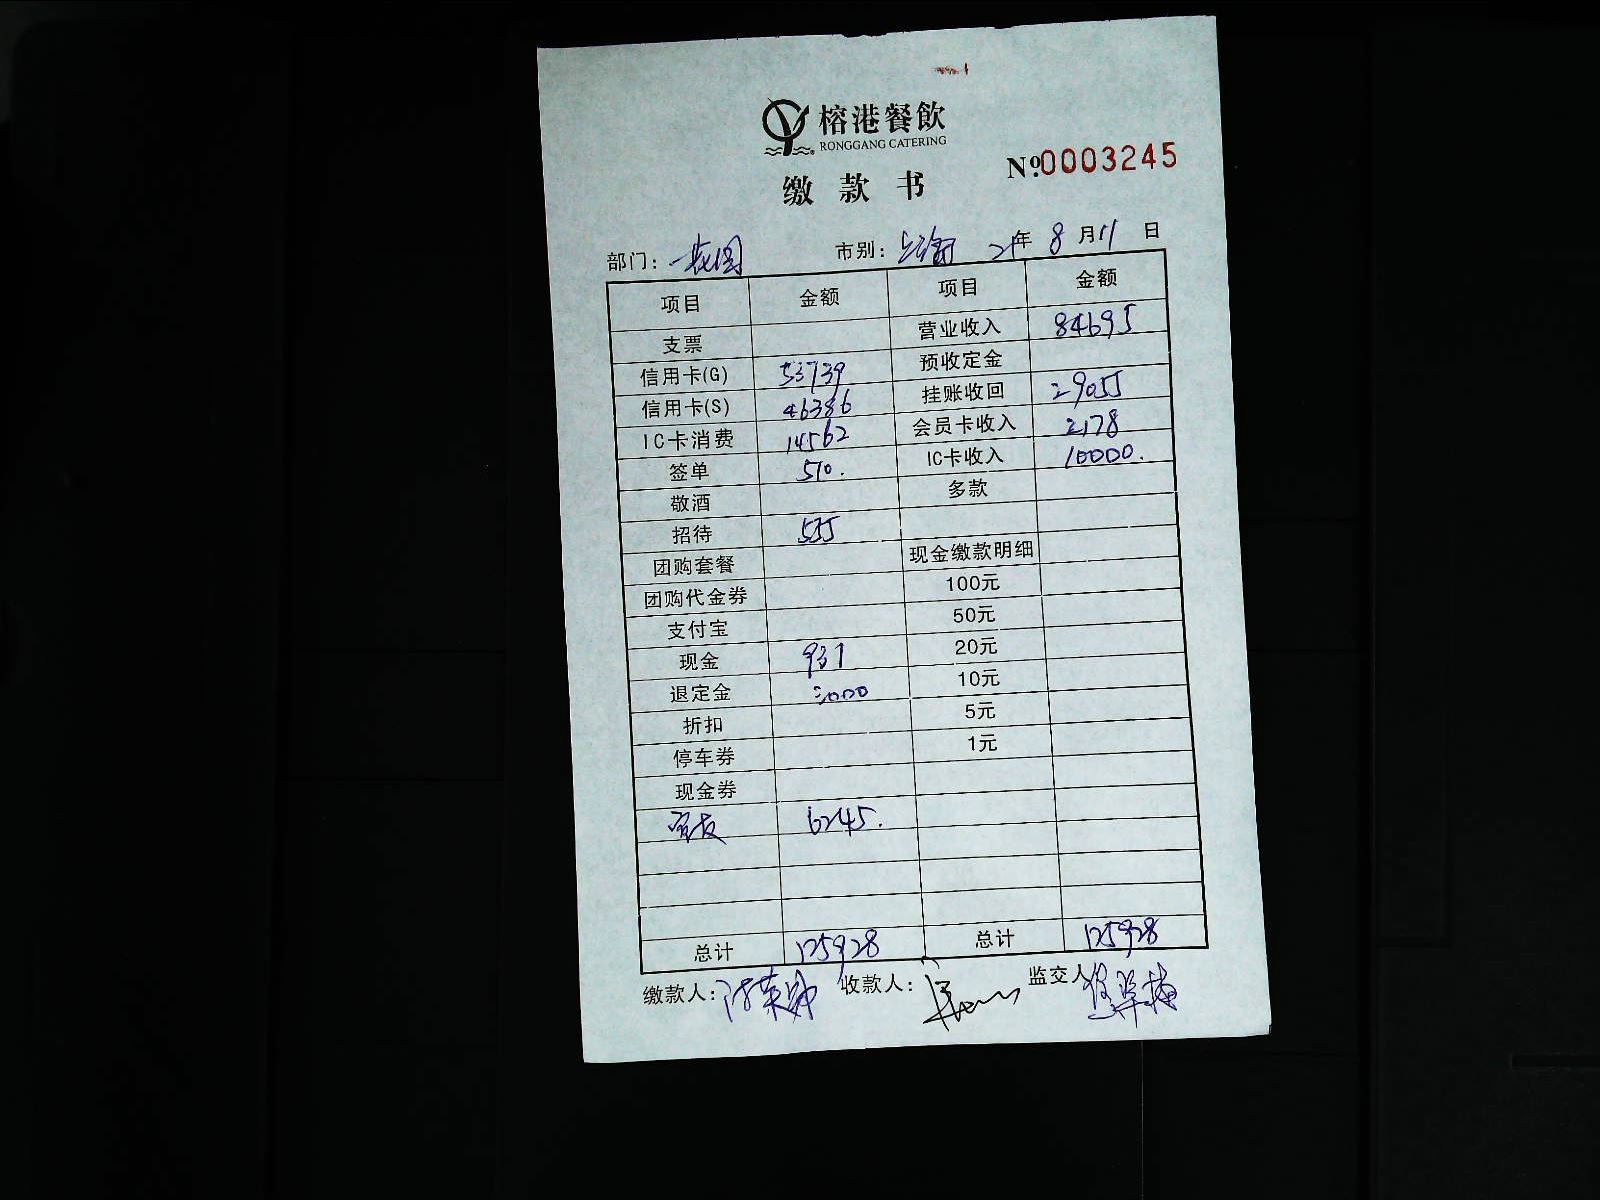 榕港餐飲
RONGGANG CATERING
缴款书 №0003245
部门: 市别: 21年 8月11日
项目 金额 项目 金额
支票 营业收入 84695
信用卡(G) 53739 预收定金
信用卡(S) 46386 挂账收回 29055
IC卡消费 14562 会员卡收入 2178
签单 510. IC卡收入 10000.
敬酒 多款
招待 555
团购套餐 现金缴款明细
团购代金券 100元
支付宝 50元
现金 931 20元
退定金 3000 10元
折扣 5元
停车券 1元
现金券
6245.
总计 125928 总计 125928
缴款人: 收款人: 监交人